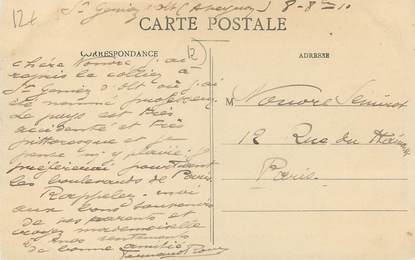 St Geniez d'Olt (Aveyron) 8-8-10
CARTE POSTALE
CORRESPONDANCE
ADRESSE
2
chère Nonore j'ai
repris le collier à
St Geniez d'Olt où j'ai
été nommé professeur
Le pays est très
accidenté et très
pittoresque et je
pense m'y plaire. Je
préfèrerais pourtant
les boulevards de Paris
Rappelez-moi
aux bons souvenirs
de vos parents et
croyez mademoiselle
à mes sentiments
de bonne amitié
M Nonore
12 Rue du
Paris